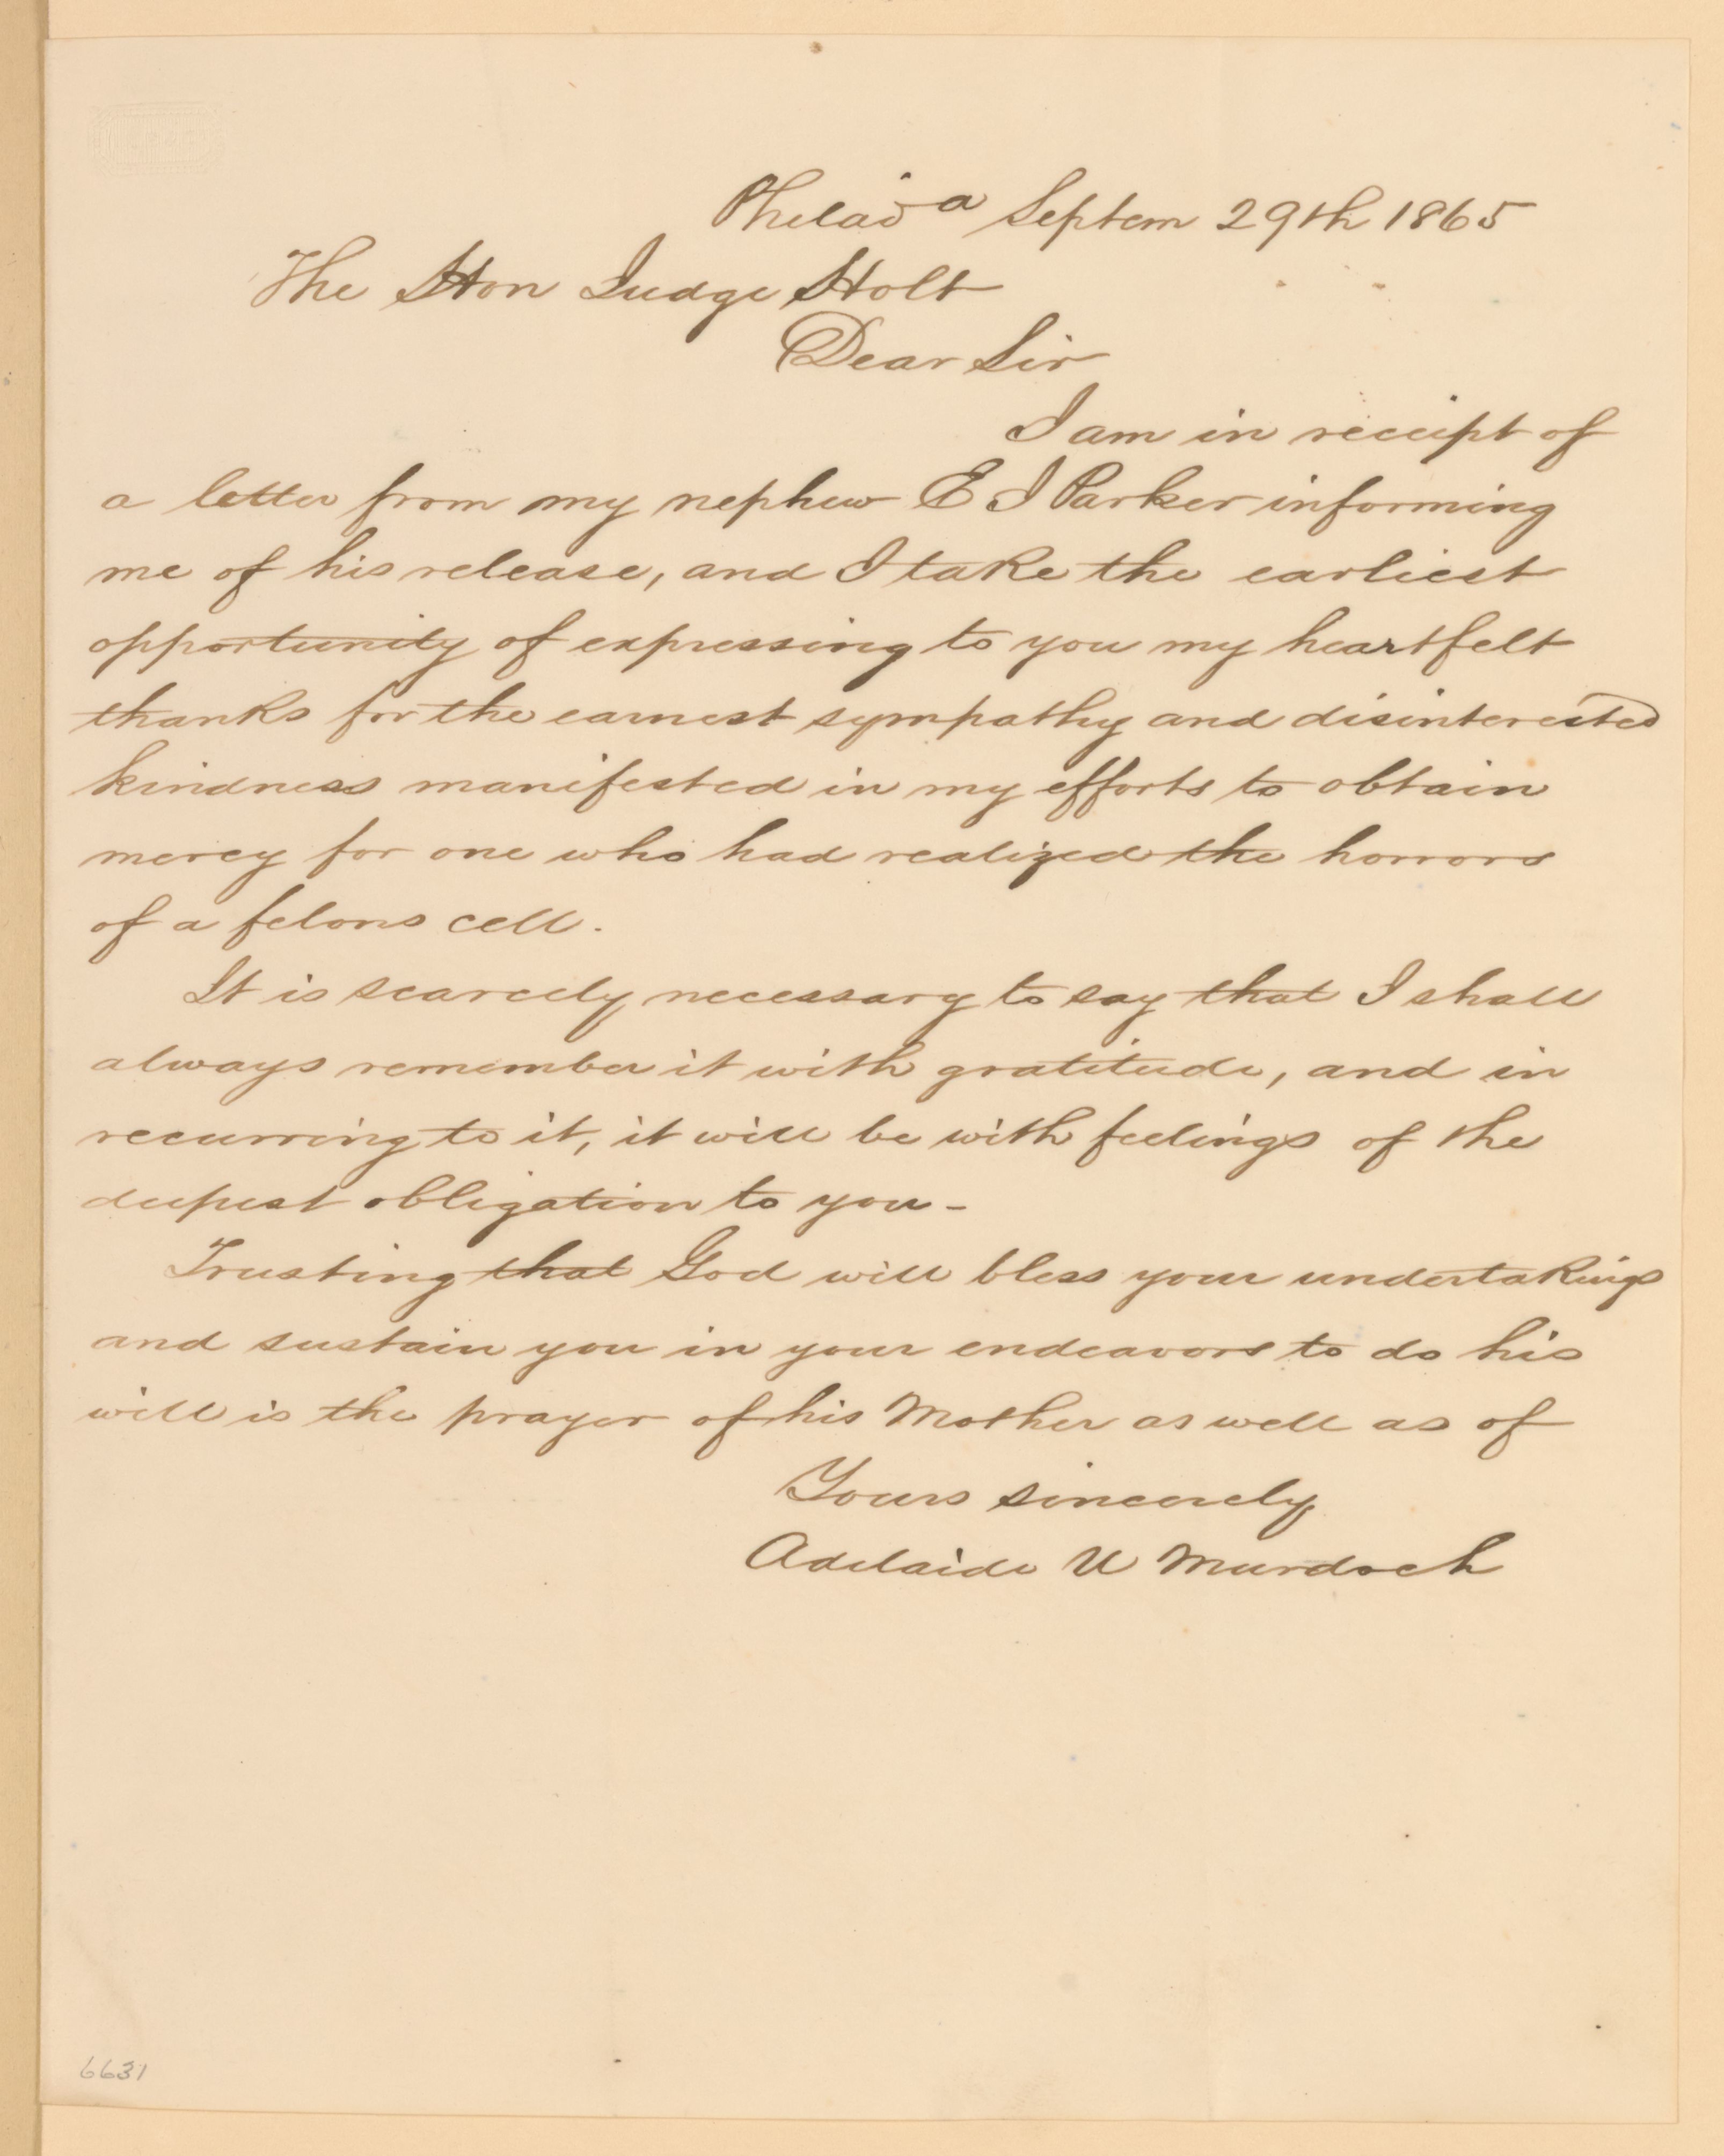 Philada Septem 29th 1865
The Hon Judge Holt
Dear Sir
I am in receipt of
a letter from my nephew E I Parker informing
me of his release, and I take the earliest
opportunity of expressing to you my heartfelt
thanks for the earnest sympathy and disinterested
kindness manifested in my efforts to obtain
mercy for one who had realized the horrors
of a felons cell.
It is scarcely necessary to say that I shall
always remember it with gratitude, and in
recurring to it, it will be with feelings of the
deepest obligation to you -
Trusting that God will bless your undertakings
and sustain you in your endeavors to do his
will is the prayer of his Mother as well as of
Yours sincerely
Adelaide U Murdoch
6631